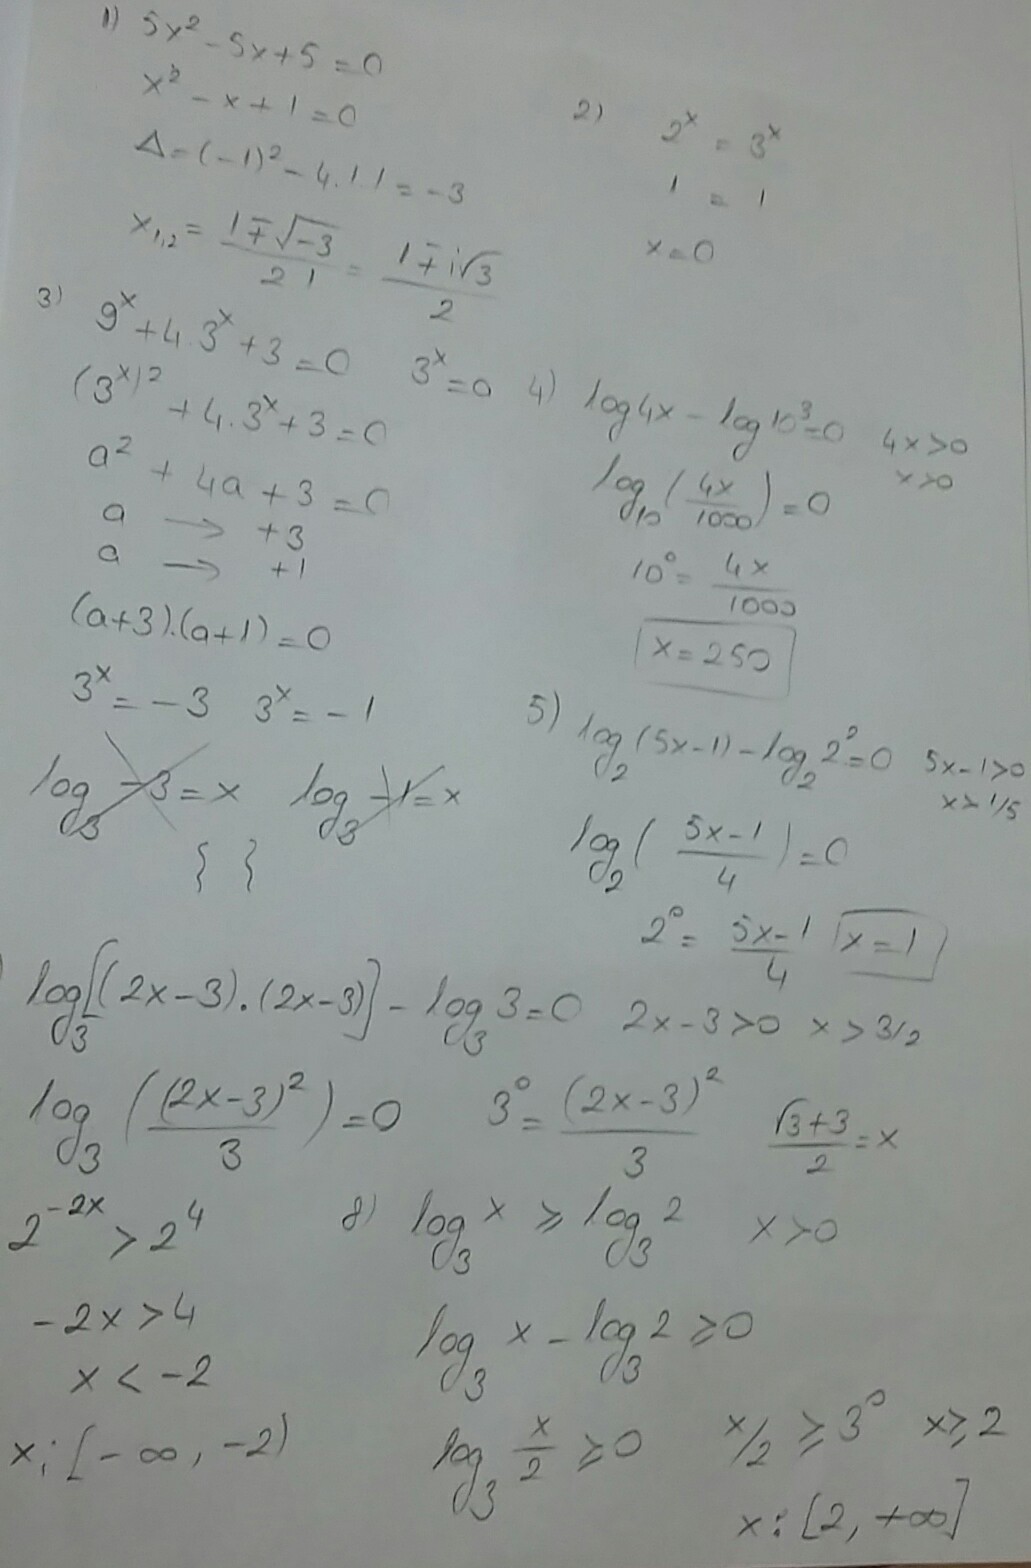 1) 5x² - 5x + 5 = 0
x² - x + 1 = 0
Δ = (-1)² - 4.1 1 = -3
x₁,₂ = (1∓√-3)/(2 1) = (1∓i√3)/2
2) 2ˣ = 3ˣ
1 = 1
x = 0
3) 9ˣ + 4.3ˣ + 3 = 0 3ˣ = a
(3ˣ)² + 4.3ˣ + 3 = 0
a² + 4a + 3 = 0
a → +3
a → +1
(a+3).(a+1) = 0
3ˣ = -3 3ˣ = -1
log₃ -3 = x log₃ -1 = x
{ }
4) log4x - log10³ = 0 4x>0
x>0
log₁₀(4x/1000) = 0
10⁰ = 4x/1000
x = 250
5) log₂(5x-1) - log₂2² = 0 5x-1>0
x>1/5
log₂((5x-1)/4) = 0
2⁰ = (5x-1)/4 x = 1
) log₃[(2x-3).(2x-3)] - log₃3 = 0 2x-3>0 x>3/2
log₃((2x-3)²/3) = 0 3⁰ = (2x-3)²/3 (√3+3)/2 = x
2⁻²ˣ > 2⁴
-2x > 4
x < -2
x: [-∞, -2)
8) log₃x ≥ log₃2 x>0
log₃x - log₃2 ≥ 0
log₃ x/2 ≥ 0 x/2 ≥ 3⁰ x ≥ 2
x: [2, +∞]